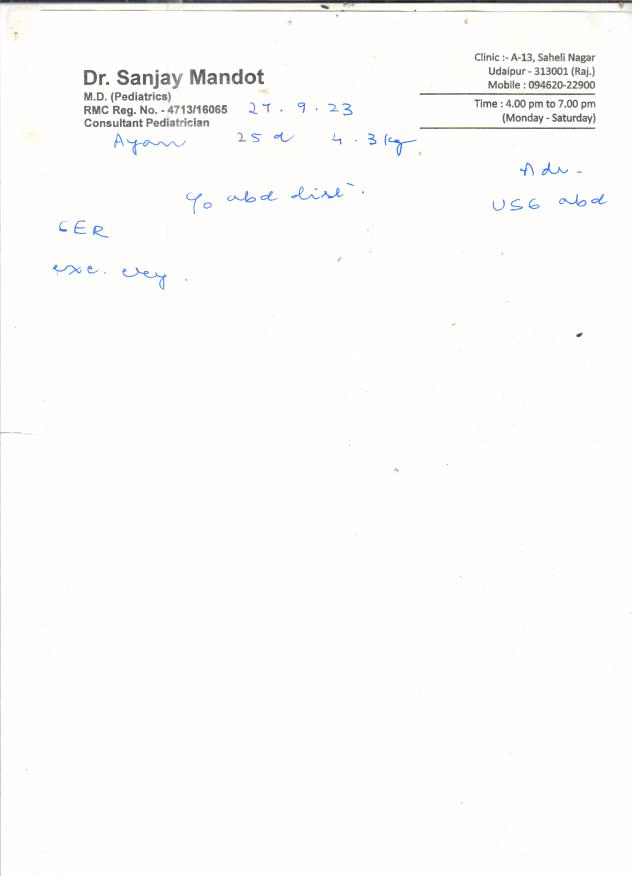 Dr. Sanjay Mandot
M.D. (Pediatrics)
RMC Reg. No. - 4713/16065
Consultant Pediatrician
Clinic :- A-13, Saheli Nagar
Udaipur - 313001 (Raj.)
Mobile : 094620-22900
Time : 4.00 pm to 7.00 pm
(Monday - Saturday)
27 . 9 . 23
Ayan 25 d 4 . 3 kg
Adv -
USG abd
c/o abd dist
GER
exc. cry .